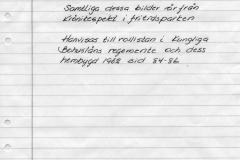 Samtliga dessa bilder rör från
Krönikespelet i friluftsparken
Hänvisas till rollistan i Kungliga
Bohusläns regemente och dess
hembygd 1962 sid 84-86.